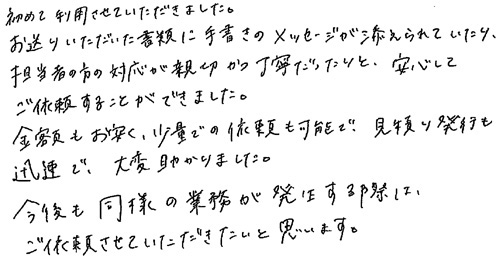 初めて利用させていただきました。
お送りいただいた書類に手書きのメッセージが添えられていたり、
担当者の方の対応が親切かつ丁寧だったりと、安心して
ご依頼することができました。
金額もお安く、少量での依頼も可能で、見積り発行も
迅速で、大変助かりました。
今後も同様の業務が発生する際は、
ご依頼させていただきたいと思います。